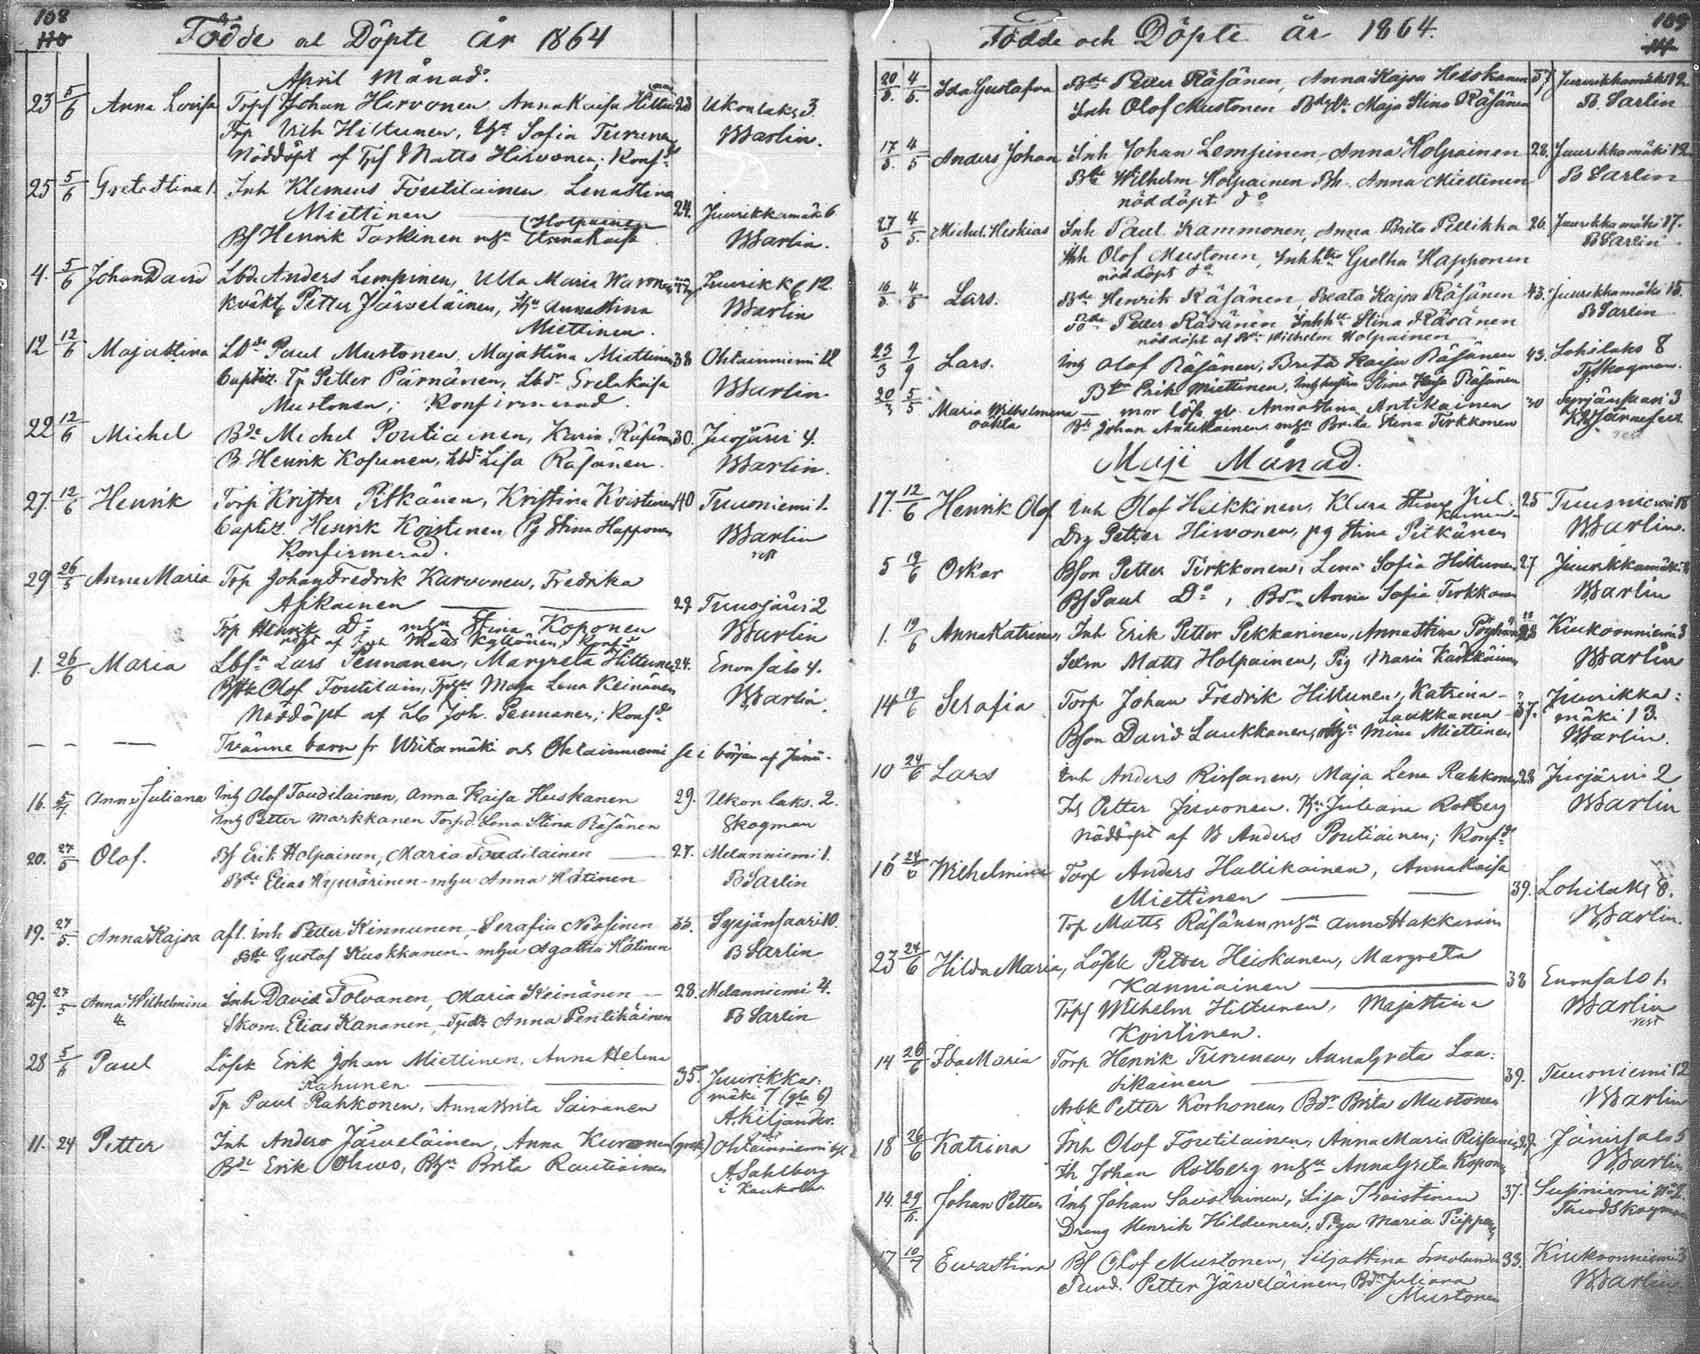 108
110
Födde och Döpte år 1864
April Månad.
23 5/6 Anna Lovisa Torpf Johan Hirvonen, Anna Kaisa Hiltunen 23 Ukonlaks 3
Trp Erik Hiltunen, Sofia Turunen Warlin.
Nöddöpt af Tpf Matts Hirvonen; Konfd
25 5/6 Greta Stina Inh Klemens Foutilainen Lena Stina
Miettinen 24. Juurikkamäki 6
Holpainen
Bf Henrik Taskinen Anna Kaisa Warlin.
4. 5/6 Johan David Lbd Anders Lempinen, Ulla Maria Juurikk 12
Petter Järveläinen, Anna Stina Warlin
Miettinen.
12 12/6 Maja Stina Lbd Paul Mustonen, Maja Stina Miettinen 38 Ohtainniemi 12
Captiz. Tp Petter Pärnänen, Lbd Greta Kaisa Warlin.
Mustonen; Konfirmerad
22 12/6 Michel Bde Michel Poutiainen, Karin Räsänen 30. Juojärvi 4.
B. Henrik Kosunen, Lbd Lisa Räsänen. Warlin.
27. 12/6 Henrik Torp Krister Pitkänen, Kristina Koistinen 40 Tuusniemi 1.
Captiz Henrik Koistinen Pg Stina Happonen Warlin
Konfirmerad.
29 26/5 Anna Maria Trp Johan Fredrik Karvonen, Fredrika
Asikainen 29 Tuusjärvi 2
Trp Henrik Do Stina Koponen Warlin
1. 26/6 Maria Lbs Lars Pennanen, Margreta Hiltunen 24. Enonsalo 4.
Olof Foutilain, Maja Lena Keinänen Warlin.
Nöddöpt af Lb Joh. Pennanen; Konfd.
Tvänne barn fr Viitamäki och Ohtainniemi se i början af Juni.
16. 5/7 Anna Juliana Inh Olof Toudilainen, Anna Kaisa Huskanen 29. Ukonlaks. 2.
Inh Petter Markkanen Torpd. Lena Stina Räsänen Skogman
20. 27/5 Olof. Bf Erik Holpainen, Maria Toudilainen 27. Melanniemi 1.
Bde Elias mhu Anna Hötinen B Sarlin
19. 27/5 Anna Kajsa afl. inh Petter Kinnunen, Serafia Nousinen 33. Syrjänsaari 10.
Bde Gustaf Kuskkanen mhu Agatha Hötinen B Sarlin
29. 27/5 Anna Wilhelmina Inh David Tolvanen, Maria Keinänen 28. Melanniemi 4.
Skom. Elias Kananen, Anna Pentikäinen B Sarlin
28 5/6 Paul Lösk Erik Johan Miettinen, Anna Helena
Rahunen 35. Juurikka-
mäki 7 (gla 6)
Tp Paul Rahkonen, Anna Brita Sairanen A. Kiljander.
11. 24 Petter Inh Anders Järveläinen, Anna Kuronen Ohtainniemi
Bde Erik Ohvo, Brita Rautiainen A. Sahlberg
i Kaukola
109
Födde och Döpte år 1864.
20/3. 4/5. Ida Gustafva Bde Petter Räsänen, Anna Kajsa Heiskanen 37 Juurikkamäki 12
Inh Olof Mustonen Maja Stina Räsänen B. Sarlin
17/3 4/5 Anders Johan Inh Johan Lempinen, Anna Holpainen 28. Juurikkamäki 12
Bde Wilhelm Holpainen Anna Miettinen B Sarlin
nöddöpt do
27/3 4/5. Michel Heskias Inh Paul Kammonen, Anna Brita Pellikka 26. Juurikkamäki 17.
Inh Olof Mustonen, Gretha Happonen B Sarlin
nöddöpt do
16/3 4/5 Lars. Bde Henrik Räsänen, Beata Kajsa Räsänen 43. Juurikkamäki 15.
Bde Petter Räsänen Stina Räsänen B Sarlin
nöddöpt af Wilhelm Holpainen
23/3 Lars. Inh Olof Räsänen, Brita Kajsa Räsänen 43. Lohilaks 8
Bde Erik Miettinen, Stina Kajsa Räsänen Skogman.
20/3 5/5 Maria Wilhelmina mor lösa Anna Stina Antikainen 30 Syrjänsaari 3
oäkta Bde Johan Antikainen Brita Stina Tirkkonen
Maji Månad.
17. 12/6 Henrik Olof Inh Olof Hakkinen, Klara Stina 25 Tuusniemi 16
Drg Petter Hirvonen, pg Stina Pitkänen Warlin.
5 19/6 Oskar Bson Petter Tirkkonen, Lena Sofia Hiltunen 27 Juurikkamäki
Bs Paul Do, Anna Sofia Tirkkonen Warlin
1. 19/6 Anna Katrina, Inh Erik Petter Pekkarinen, Anna Stina Kiukoonniemi 3
Matts Holpainen, Pig Maria Warlin
14 19/6 Serafia Torp Johan Fredrik Hiltunen, Katrina
Laukkanen 37. Juurikka-
mäki 13.
Bson David Laukkanen, Mina Miettinen Warlin.
10 24/6 Lars Inh Anders Rissanen, Maja Lena Rahkonen 28 Juojärvi 2
Petter Juvonen. Juliana Rotberg Warlin
Nöddöpt af B Anders Poutiainen; Konfd
16 24/6 Wilhelmina Torp Anders Hallikainen, Anna Kaisa
Miettinen 39. Lohilaks 8.
Torp Matts Räsänen, Anna Hakkarain Warlin.
23 24/6 Hilda Maria, Lösk Petter Heiskanen, Margreta
Kanniainen 38 Enonsalo 1.
Torpf Wilhelm Hiltunen, Maja Stina Warlin
Koistinen.
14 26/6 Ida Maria Torp Henrik Turunen, Anna Greta Laa-
tikainen 39. Tuusniemi 12
Arbk Petter Korhonen, Brita Mustonen Warlin
18 26/6 Katrina Inh Olof Foutilainen, Anna Maria Rissanen 27. Jänissalo 5
Johan Rotberg Anna Greta Kopon Warlin
14. 29/5. Johan Petter Inh Johan Savolainen, Lisa Koistinen 37. Supniemi
Dreng Henrik Hildunen, Piga Maria Piippo Skogman
17 10/7 Eva Stina Bf Olof Mustonen, Silja Stina Smolander 33. Kiukoonniemi 3
Petter Järveläinen, Juliana Warlin
Mustonen